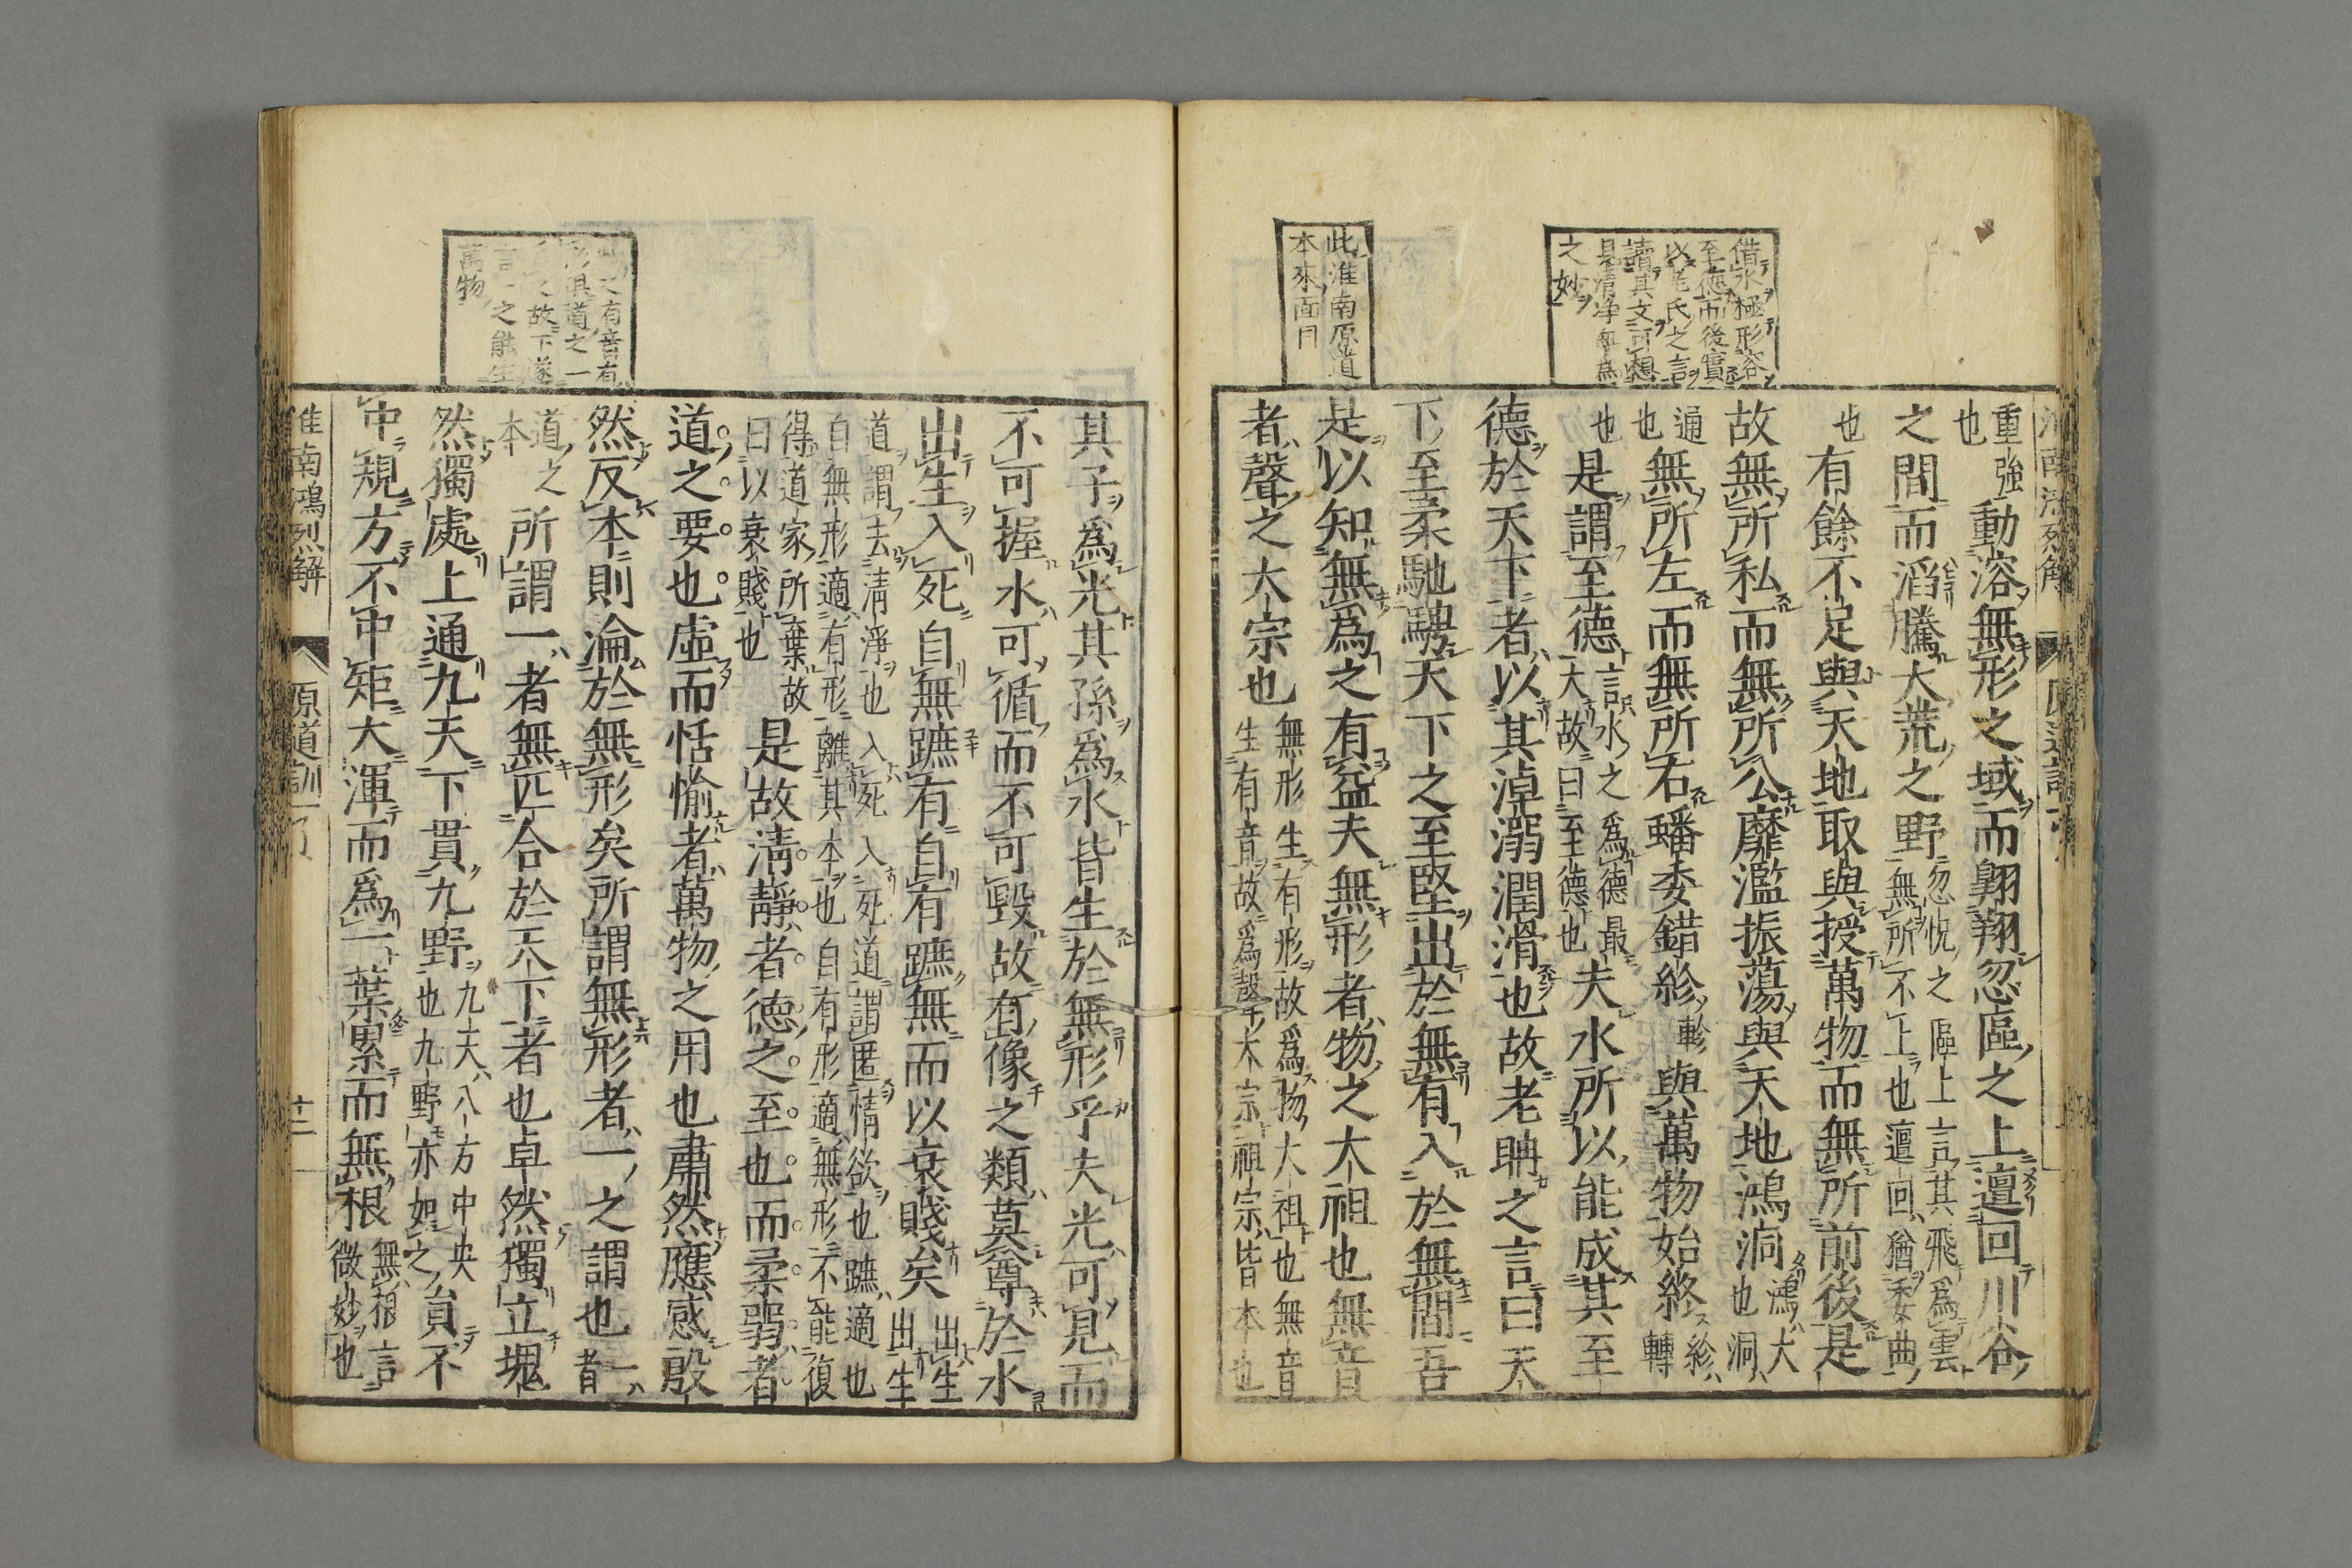 借水極形容
至德而後實
以老氏之言
讀其文可想
見清淨無為
之妙
此淮南原道
本來面目
重強
也
動溶無形之域而翺翔忽區之上邅回川谷
之間而滔騰大荒之野
忽怳之區上言其飛為雲
無所不上也邅回猶委曲
也
有餘不足與天地取與授萬物而無所前後是
故無所私而無所公靡濫振蕩與天地鴻洞
鴻大
也洞
通
也
無所左而無所右蟠委錯紾
軫
與萬物始終
紾
轉
也
是謂至德
言水之為德最
大故曰至德也
夫水所以能成其至
德於天下者以其淖溺潤滑也故老聃之言曰天
下至柔馳騁天下之至堅出於無有入於無間吾
是以知無為之有益夫無形者物之大祖也無音
者聲之大宗也
無形生有形故為物大祖也無音
生有音故為聲大宗祖宗皆本也
此之有音有
形俱道之一
故下遂
言一之能生
萬物
其子為光其孫為水皆生於無形乎夫光可見而
不可握水可循而不可毀故有像之類莫尊於水
出生入死自無蹠有自有蹠無而以衰賤矣
出生
出生
道謂去清淨也入死入死道謂匿情欲也蹠適也
自無形適有形離其本也自有形適無形不能復
得道家所棄故
曰以衰賤也
是故清靜者德之至也而柔弱者
道之要也虛而恬愉者萬物之用也肅然應感殷
然反本則淪於無形矣所謂無形者一之謂也
一
者
道之
本
所謂一者無匹合於天下者也卓然獨立塊
然獨處上通九天下貫九野
九天八方中央
也九野亦如之
員不
中規方不中矩大渾而為一葉累而無根
無根言
微妙也
淮南鴻烈解
原道訓
十二